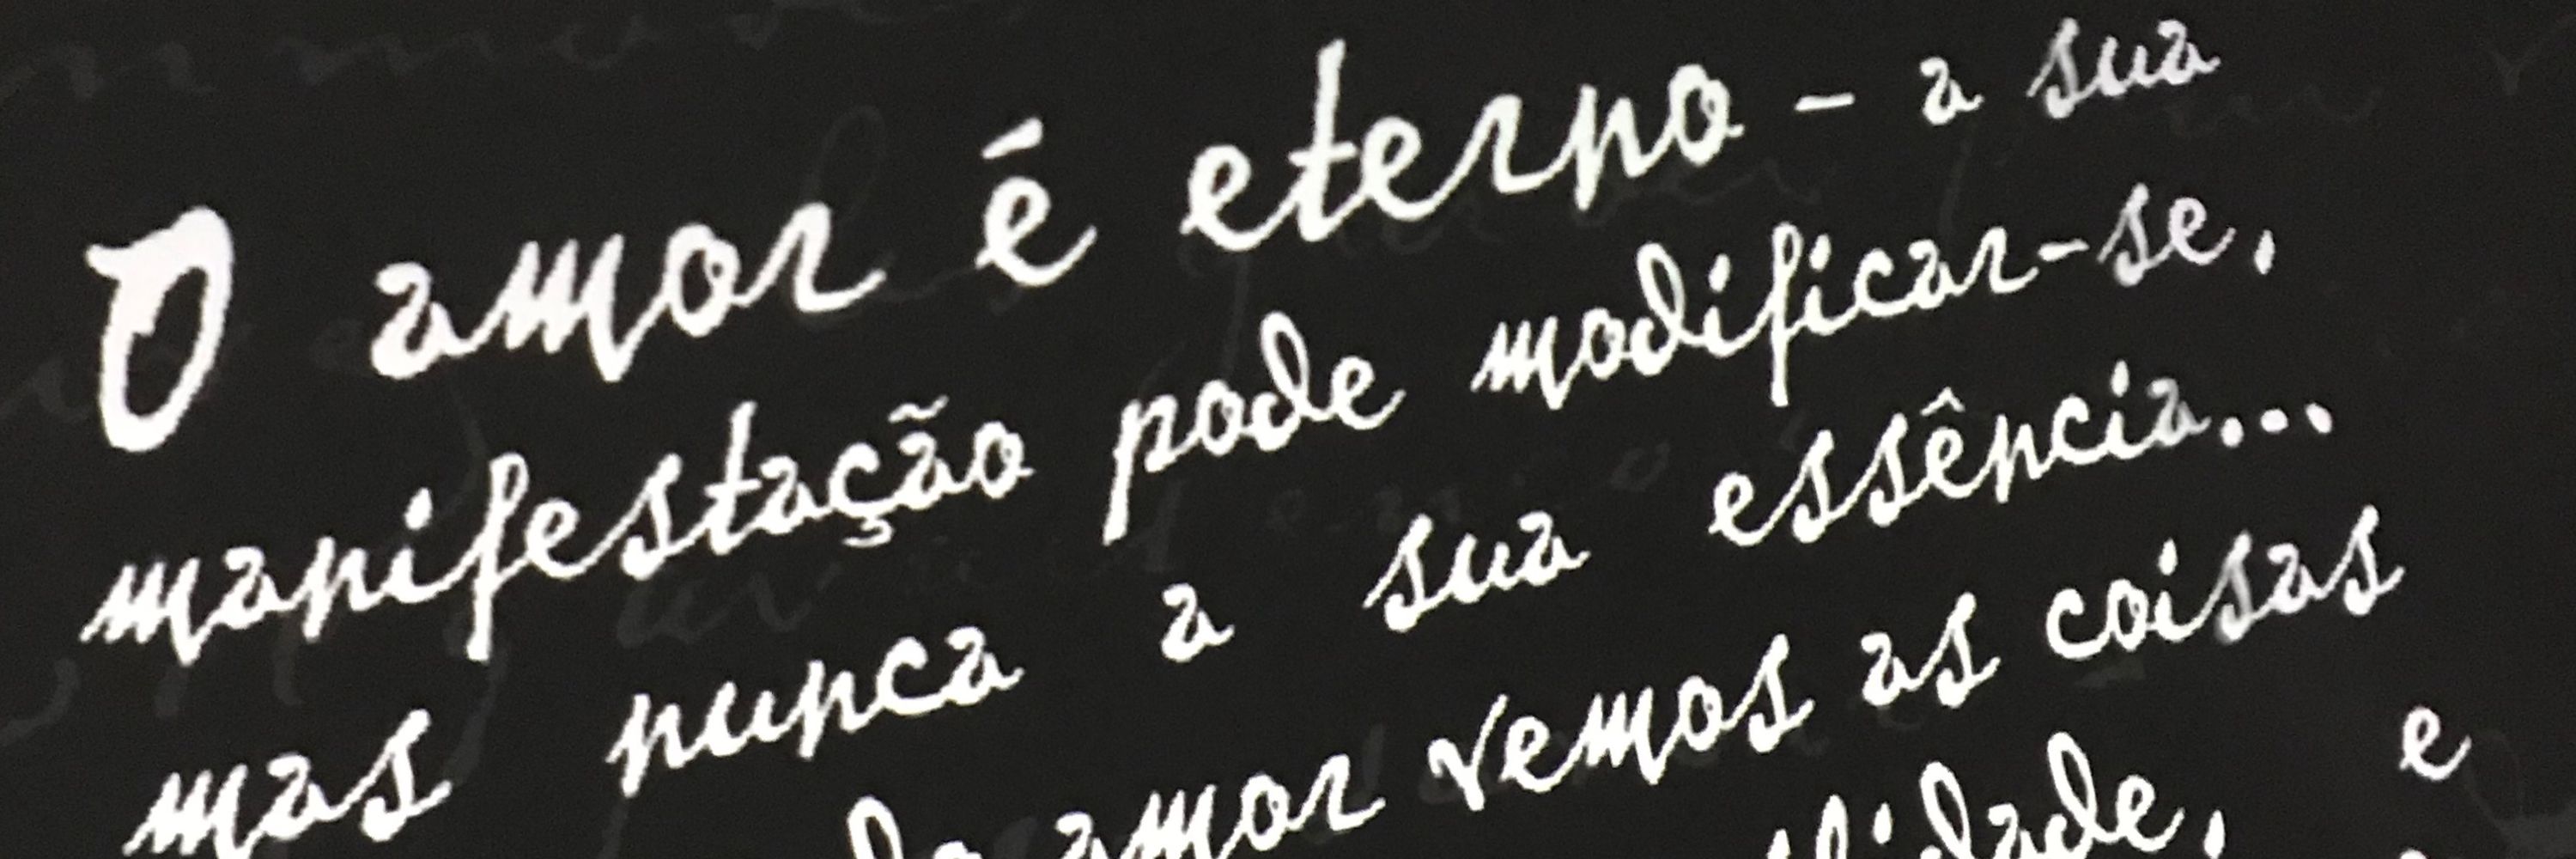 O amor é eterno - a sua
manifestação pode modificar-se,
mas nunca a sua essência...
amor vemos as coisas
e